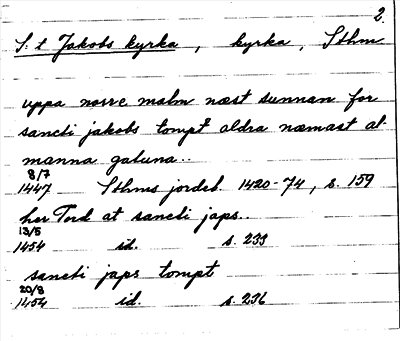 2.
S:t Jakobs kyrka, kyrka, Sthm
uppa norre malm næst sunnan for
sancti jakobs tompt aldra næmast al-
manna gatuna..
8/7
1447 Sthms jordeb. 1420-74, s. 159
her Tord at sancti japs..
13/5
1454 id. s. 233
sancti japs tompt
20/8
1454 id. s. 236